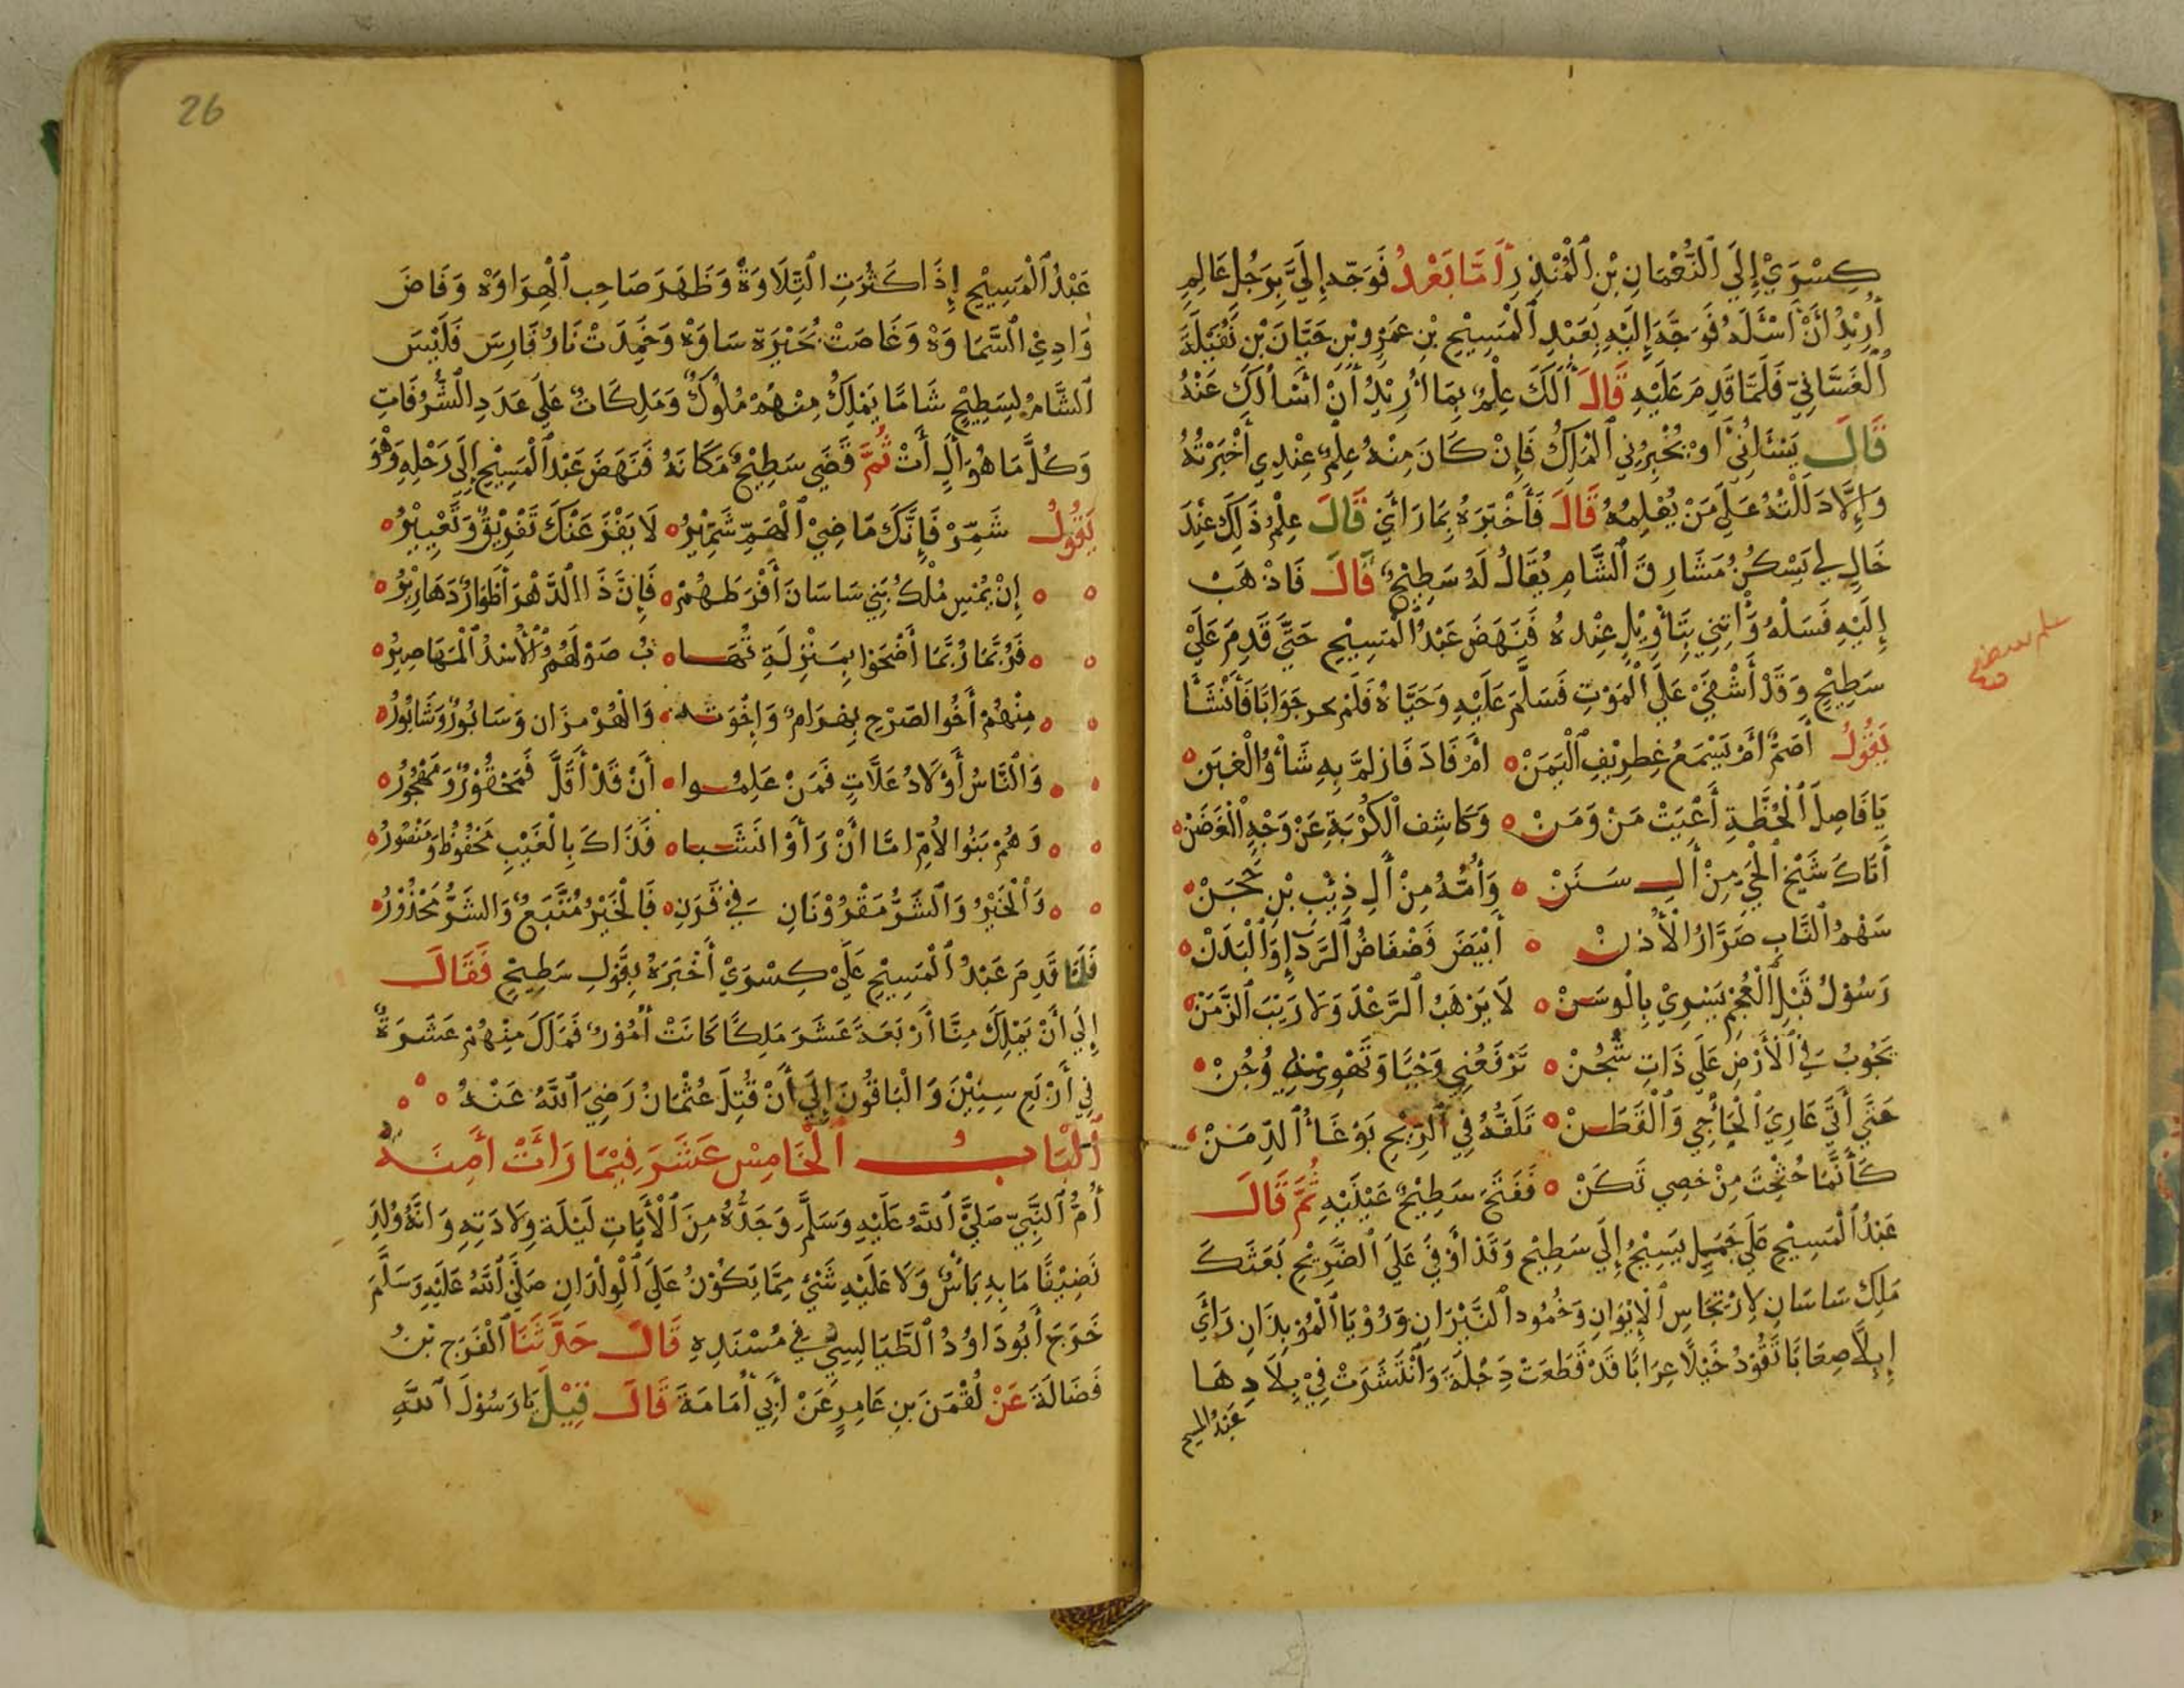 كِسْرَيْ إِلَيَ النُّعْمَانِ بْنِ الْمُنْذِرِ أَمَّا بَعْدُ فَوَجِّه إِلَيَّ بِرَجُلٍ عَالِمٍ
أُرِيْدُ أَنْ أَسْئَلَهُ فَوَجَّهَ إِلَيْهِ بِعَبْدِ الْمَسِيْحِ بْنِ عَمْرِو بْنِ حَيَّانَ بْنِ نُفَيْلَةَ
الْغَسَّانِيِّ فَلَمَّا قَدِمَ عَلَيْهِ قَالَ أَلَكَ عِلْمٌ بِمَا أُرِيْدُ أَنْ أَسْأَلَكَ عَنْهُ
قَالَ يَسْئَلُنِي أَوْ يُخْبِرُنِي الْمَلِكُ فَإِنْ كَانَ مِنْهُ عِلْمٌ عِنْدِي أَخْبَرْتُهُ
وَإِلَّا دَلَلْتُهُ عَلَي مَنْ يُعْلِمُهُ قَالَ فَأَخْبَرَهُ بِمَا رَأَيَ قَالَ عِلْمُ ذَلِكَ عِنْدَ
خَالٍ لِي يَسْكُنُ مَشَارِقَ الشَّامِ يُقَالُ لَهُ سَطِيْحٌ قَالَ فَاذْهَبْ
إِلَيْهِ فَسَلْهُ وَأْتِنِي بِتَأْوِيْلِ عِنْدهُ فَنَهَضَ عَبْدُ الْمَسِيْحِ حَتَّي قَدِمَ عَلَيْ
سَطِيْحٍ وَقَدْ أَشْفَيَ عَلَي الْمَوْتِ فَسَلَّمَ عَلَيْهِ وَحَيَّاهُ فَلَمْ يحر جَوَابًا فَأَنْشَأَ
يَقُوْلُ أَصَمٌّ أَمْ يَسْمَعُ غِطرِيْفِ الْيَمَنْ ٥ أَمْ فَادَ فَازلَمَّ بِهِ شَأْوُ الْعَنَنْ
يَا فَاصِلَ الْخُطَّةِ أَعْيَتْ مَنْ وَمَنْ ٥ وَكَاشِف الْكُرْبَةِ عَنْ وَجْهِ الْغَضَنْ
أَتَاكَ شَيْخ الْحَيِّ مِنْ أَلِ سَنَنْ ٥ وَأُمُّهُ مِنْ أَلِ ذِئْبِ بْنِ حَجَنْ
سَهْمُ النَّابِ صَرَّارُ الْأُذنْ ٥ أَبْيَضَ فَضْفَاضُ الرَّدَإِ وَالْبَدَنْ
رَسُوْلُ قَبْلِ الْعُجْمِ يَسْرِيْ بِالْوسَنْ ٥ لَا يَرْهَبُ الرَّعْدَ وَلَا رَيْبَ الزَّمَنْ
يَجُوْبُ فِي الْأَرْضِ عَلَي ذَاتِ شُجُنْ ٥ تَرْفَعُنِي وَجْنًا وَتَهْوِيْ بِي وُجُنْ
حَتَّي أَتَي عَارِيَ الْجَآجِي وَالْقَطَنْ ٥ تَلَفُّهُ فِي الرِّيْحِ بَوْغَأُ الدِّمَنْ
كَأَنَّمَا حُثْحِثَ مِنْ حِصنِي ثَكَنْ ٥ فَفَتَحَ سَطِيْحٌ عَيْنَيْهِ ثُمَّ قَالَ
عَبْدُ الْمَسِيْحِ عَلَي جَمَلٍ يَسِيْحُ إِلَي سَطِيْحٍ وَقَدْ أَوْفَيَ عَلَي الضَّرِيْحِ بَعَثَكَ
مَلِكُ سَاسَانَ لِارْتِجَاسِ الْإِيْوَانِ وَخُمُودِ النَّيْرَانِ وَرُؤْيَا الْمُوْبِذَانِ رَأَي
إِبِلًا صِعَابًا تَقُوْدُ خَيْلًا عِرَابًا قَدْ قَطَعَتْ دِجْلَةَ وَانْتَشَرَتْ فِيْ بِلَادِهَا
عَبْدُ المسيح
علم سطيح
26
عَبْدُ الْمَسِيْحِ إِذَا كَثُرَتِ التِّلَاوَةْ وَظَهَرَ صَاحِب الْهِرَاوَهْ وَفَاضَ
وَادِيْ السَّمَاوَهْ وَغَاضَتْ بُحَيْرَة سَاوَهْ وَخَمِدَتْ نَارُ فَارِسَ فَلَيْسَ
الشَّامُ لِسَطِيْحٍ شَامًا يَمْلِكُ مِنْهُمْ مُلُوْكٌ وَمَلِكَاتٌ عَلَي عَدَدِ الشُّرُفَاتِ
وَكُلُّ مَا هُوَ أَلٍ أَتْ ثُمَّ قَضَي سَطِيْحٌ مَكَانَهُ فَنَهَضَ عَبْدُ الْمَسِيْحِ إِلَي رَحْلِهِ وَهُوَ
يَقُوْلُ شَمِّرْ فَإِنَّكَ مَا ضِيْ الْهَمِّ شَمِّيْرُ ٥ لَا يَفْزَعَنْكَ تَفْرِيْقٌ وَتَغْيِيْرُ ٥
إِنْ يُمْسِ مُلْكُ بَنِي سَاسَانَ أَفْرَطَهُمْ ٥ فَإِنَّ ذَا الدَّهْرَ أَطْوَارٌ دَهَارِيْرُ ٥
فَرُبَّمَا رُبَّمَا أَضْحَوْا بِمَنْزِلَةٍ تُهَا ٥ بُ صَوْلَهُمُ الْأُسْدُ الْمَهَاصِيْرُ ٥
مِنْهُمْ أَخُوا الصَرْحِ بِهْرَامٌ وَإِخْوَتُه ٥ وَالْهُرْمزَان وَسَابُوْرٌ وَشَابُوْرُ ٥
وَالنَّاسُ أَوْلَادُ عَلَّاتٍ فَمَنْ عَلِمُوا ٥ أَنْ قَدْ أَقَلَّ فَمَحْقُوْرٌ وَمَهْجُوْرُ ٥
وَهُمْ بَنُوا الأُمِّ امَّا أَنْ رَأَوْا نَشَبا ٥ فَذَاكَ بِالْغَيْبِ مَحْفُوْظٌ وَمَنْصُوْرُ ٥
وَالْخَيْرُ وَالشَّرُّ مَقْرُوْنَانِ فِيْ قَرَنِ ٥ فَالْخَيْرُ مُتَّبَعٌ وَالشَرُّ مَحْذُوْرُ ٥
فَلَمَّا قَدِمَ عَبْدُ الْمَسِيْحِ عَلَيْ كِسْرَيْ أَخْبَرَهُ بِقَوْلِ سَطِيْحٍ فَقَالَ
إِلَي أَنْ يَمْلِكَ مِنَّا أَرْبَعَةَ عَشَرَ مَلِكًا كَانَتْ أُمُوْرٌ فَمَلَكَ مِنْهُمْ عَشَرَةٌ
فِي أَرْبَعِ سِنِيْنَ وَالْبَاقُوْنَ إِلَي أَنْ قُتِلَ عُثْمَانُ رَضِيَ اللَّهُ عَنْهُ ٥ ٥ ٥
أَلْبَابُ الْخَامِسْ عَشَرَ فِيْمَا رَأَتْ أَمِنَةُ
أُمُّ النَّبِيِّ صَلَّيَ اللَّهُ عَلَيْهِ وَسَلَّمَ وَجَدُّهُ مِنَ الْأَيَاتِ لَيْلَة وِلَادَتِهِ وَانَّهُ وُلِدَ
نَضِيْفًا مَا بِهِ بَأْسٌ وَلَا عَلَيْهِ شَيْءٌ مِمَّا يَكُوْنُ عَلَي الْوِلْدَانِ صَلَّي اللَّهُ عَلَيْهِ وَسَلَّمَ
خَرَجَ أَبُو دَاوُدُ الطَّيَالِسِيُّ فِي مُسْنَدِهِ قَالَ حَدَّثَنَا الْفَرَج بْنُ
فَضَالَةَ عَنْ لُقْمَنَ بنِ عَامِرٍ عَنْ أَبِي أُمَامَةَ قَالَ قِيْلَ يَا رَسُوْلَ اللَّهِ